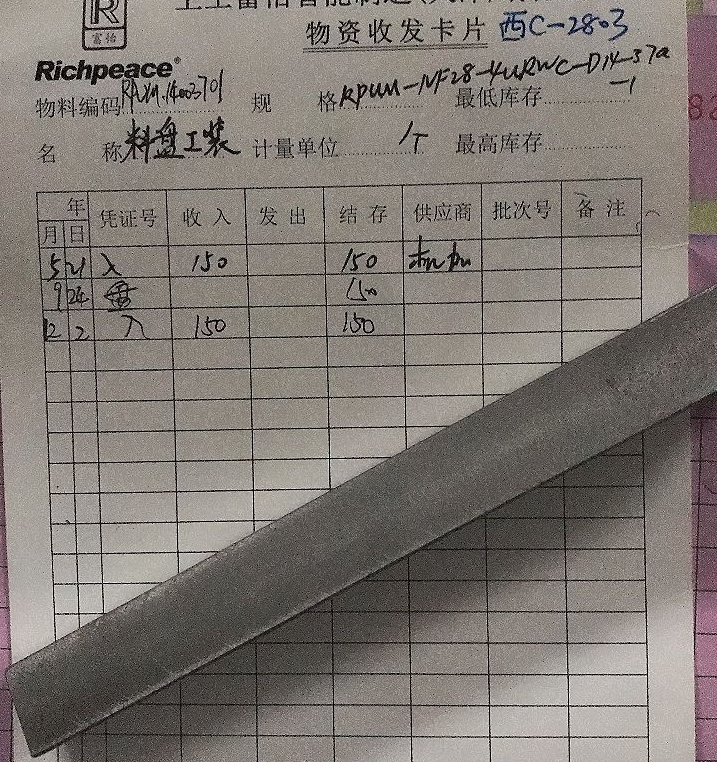 富怡
物资收发卡片 西C-2803
Richpeace®
物料编码 规 格 最低库存
-1
名 称 料盘工装 计量单位 最高库存
年
月 日 凭证号 收入 发出 结存 供应商 批次号 备注
5 21 入 150 150
9 24 盘 150
12 2 入 150 150